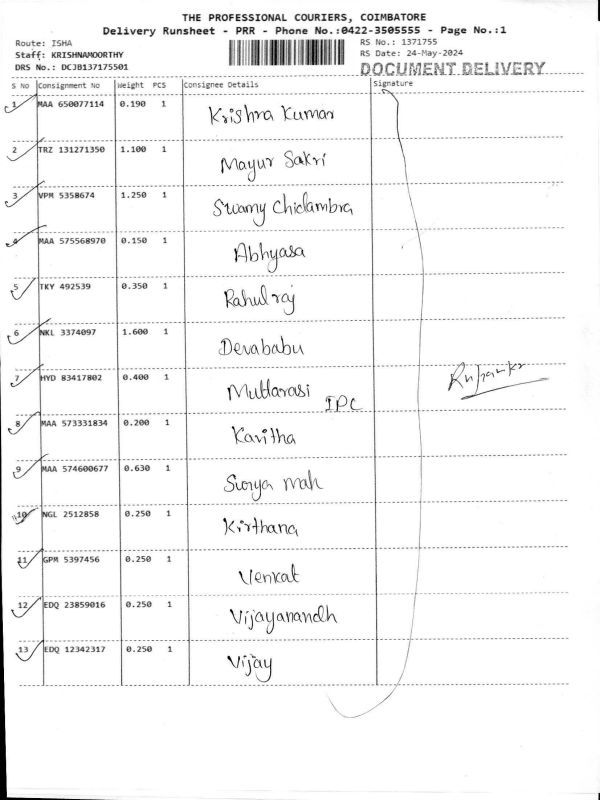 THE PROFESSIONAL COURIERS, COIMBATORE
Delivery Runsheet - PRR - Phone No.:0422-3505555 - Page No.:1
Route: ISHA RS No.: 1371755
Staff: KRISHNAMOORTHY RS Date: 24-May-2024
DRS No.: DCJB137175501 DOCUMENT DELIVERY
S No Consignment No Weight PCS Consignee Details Signature
1 MAA 650077114 0.190 1 Krishna Kumar
2 TRZ 131271350 1.100 1 Mayur Sakri
3 VPM 5358674 1.250 1 Swamy Chidambra
4 MAA 575568970 0.150 1 Abhyasa
5 TKY 492539 0.350 1 Rahul raj
6 NKL 3374097 1.600 1 Devababu
7 HYD 83417802 0.400 1 Mutlarasi IPC
8 MAA 573331834 0.200 1 Kavitha
9 MAA 574600677 0.630 1 Surya mah
10 NGL 2512858 0.250 1 Kirthana
11 GPM 5397456 0.250 1 Venkat
12 EDQ 23859016 0.250 1 Vijayanandh
13 EDQ 12342317 0.250 1 Vijay